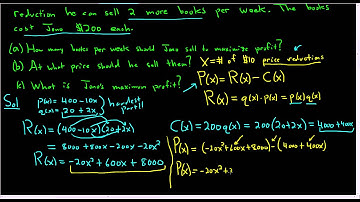 reduction he can sell 2 more books per week. The books
cost Jano $200 each.
(a) How many books per week should Jano sell to maximize profit?
(b) At what price should he sell them?
(c) What is Jano's maximum profit?
x = # of $10 price reductions
P(x) = R(x) - C(x)
R(x) = q(x)·p(x) = p(x)q(x)
Sol
p(x) = 400 - 10x
q(x) = 20 + 2x
hardest part!!
R(x) = (400 - 10x)(20 + 2x)
= 8000 + 800x - 200x - 20x²
R(x) = -20x² + 600x + 8000
C(x) = 200q(x) = 200(20+2x) = 4000+400x
P(x) = (-20x² + 600x + 8000) - (4000 + 400x)
P(x) = -20x² +